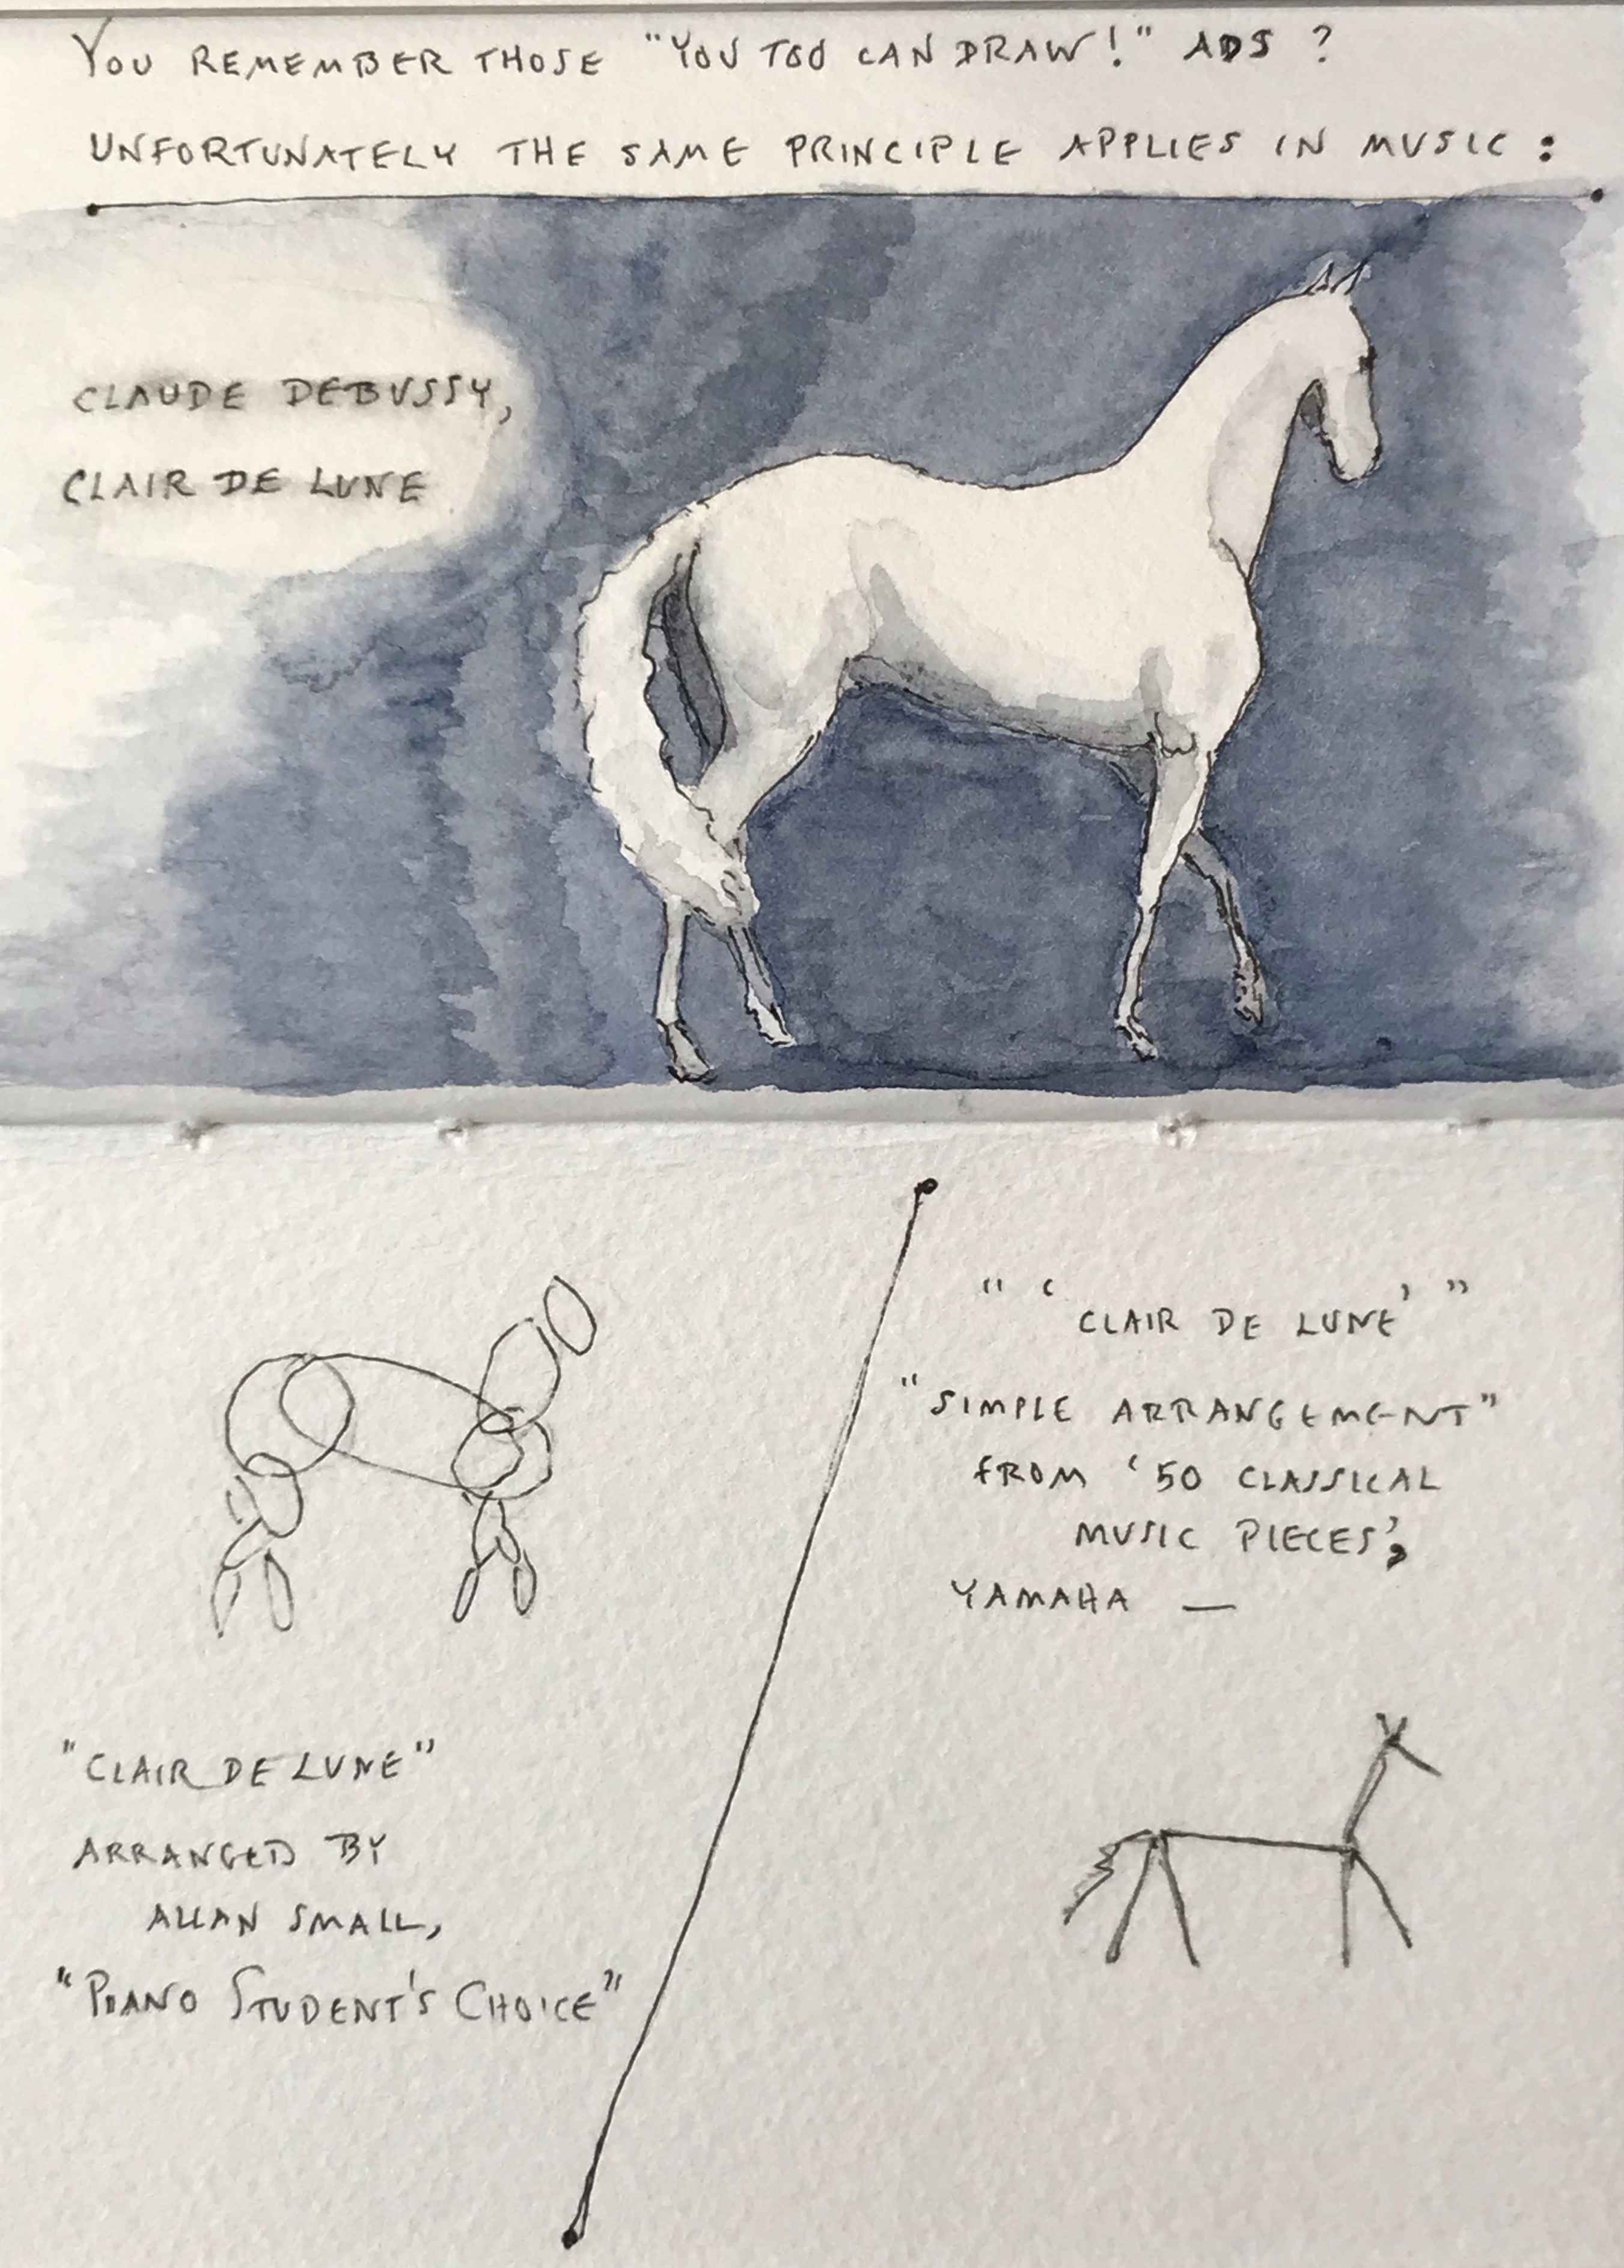 YOU REMEMBER THOSE "YOU TOO CAN DRAW!" ADS?
UNFORTUNATELY THE SAME PRINCIPLE APPLIES IN MUSIC:
CLAUDE DEBUSSY,
CLAIR DE LUNE
"CLAIR DE LUNE"
ARRANGED BY
ALLAN SMALL,
"PIANO STUDENT'S CHOICE"
"'CLAIR DE LUNE'"
"SIMPLE ARRANGEMENT"
FROM '50 CLASSICAL
MUSIC PIECES',
YAMAHA —